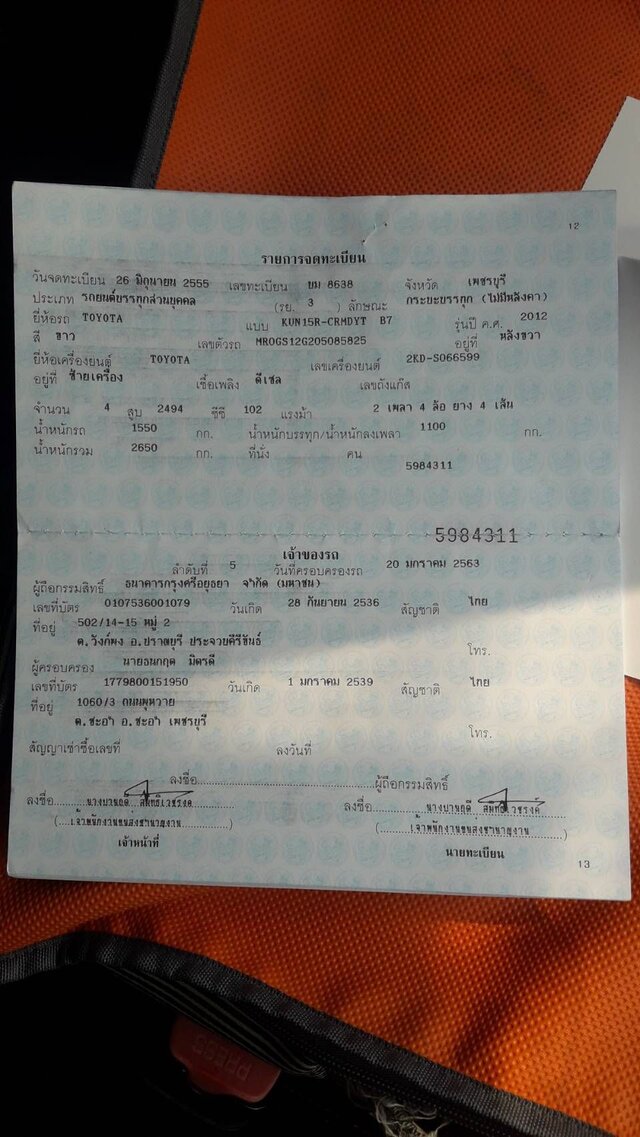 12
รายการจดทะเบียน
วันจดทะเบียน 26 มิถุนายน 2555 เลขทะเบียน ยม 8638 จังหวัด เพชรบุรี
ประเภท รถยนต์บรรทุกส่วนบุคคล (รย. 3 ) ลักษณะ กระบะบรรทุก (ไม่มีหลังคา)
ยี่ห้อรถ TOYOTA แบบ KUN15R-CRMDYT B7 รุ่นปี ค.ศ. 2012
สี ขาว เลขตัวรถ MROGS12G205085825 อยู่ที่ หลังขวา
ยี่ห้อเครื่องยนต์ TOYOTA เลขเครื่องยนต์ 2KD-S066599
อยู่ที่ ซ้ายเครื่อง เชื้อเพลิง ดีเซล เลขถังแก๊ส
จำนวน 4 สูบ 2494 ซีซี 102 แรงม้า 2 เพลา 4 ล้อ ยาง 4 เส้น
น้ำหนักรถ 1550 กก. น้ำหนักบรรทุก/น้ำหนักลงเพลา 1100 กก.
น้ำหนักรวม 2650 กก. ที่นั่ง คน
5984311
5984311
เจ้าของรถ
ลำดับที่ 5 วันที่ครอบครองรถ 20 มกราคม 2563
ผู้ถือกรรมสิทธิ์ ธนาคารกรุงศรีอยุธยา จำกัด (มหาชน)
เลขที่บัตร 0107536001079 วันเกิด 28 กันยายน 2536 สัญชาติ ไทย
ที่อยู่ 502/14-15 หมู่ 2
ต.วังก์พง อ.ปราณบุรี ประจวบคีรีขันธ์ โทร.
ผู้ครอบครอง นายธนกฤต มิตรดี
เลขที่บัตร 1779800151950 วันเกิด 1 มกราคม 2539 สัญชาติ ไทย
ที่อยู่ 1060/3 ถนน
ต.ชะอำ อ.ชะอำ เพชรบุรี โทร.
สัญญาเช่าซื้อเลขที่ ลงวันที่
ลงชื่อ ผู้ถือกรรมสิทธิ์
ลงชื่อ ลงชื่อ
(เจ้าพนักงานขนส่งชำนาญงาน) (เจ้าพนักงานขนส่งชำนาญงาน)
เจ้าหน้าที่ นายทะเบียน
13
PRESS